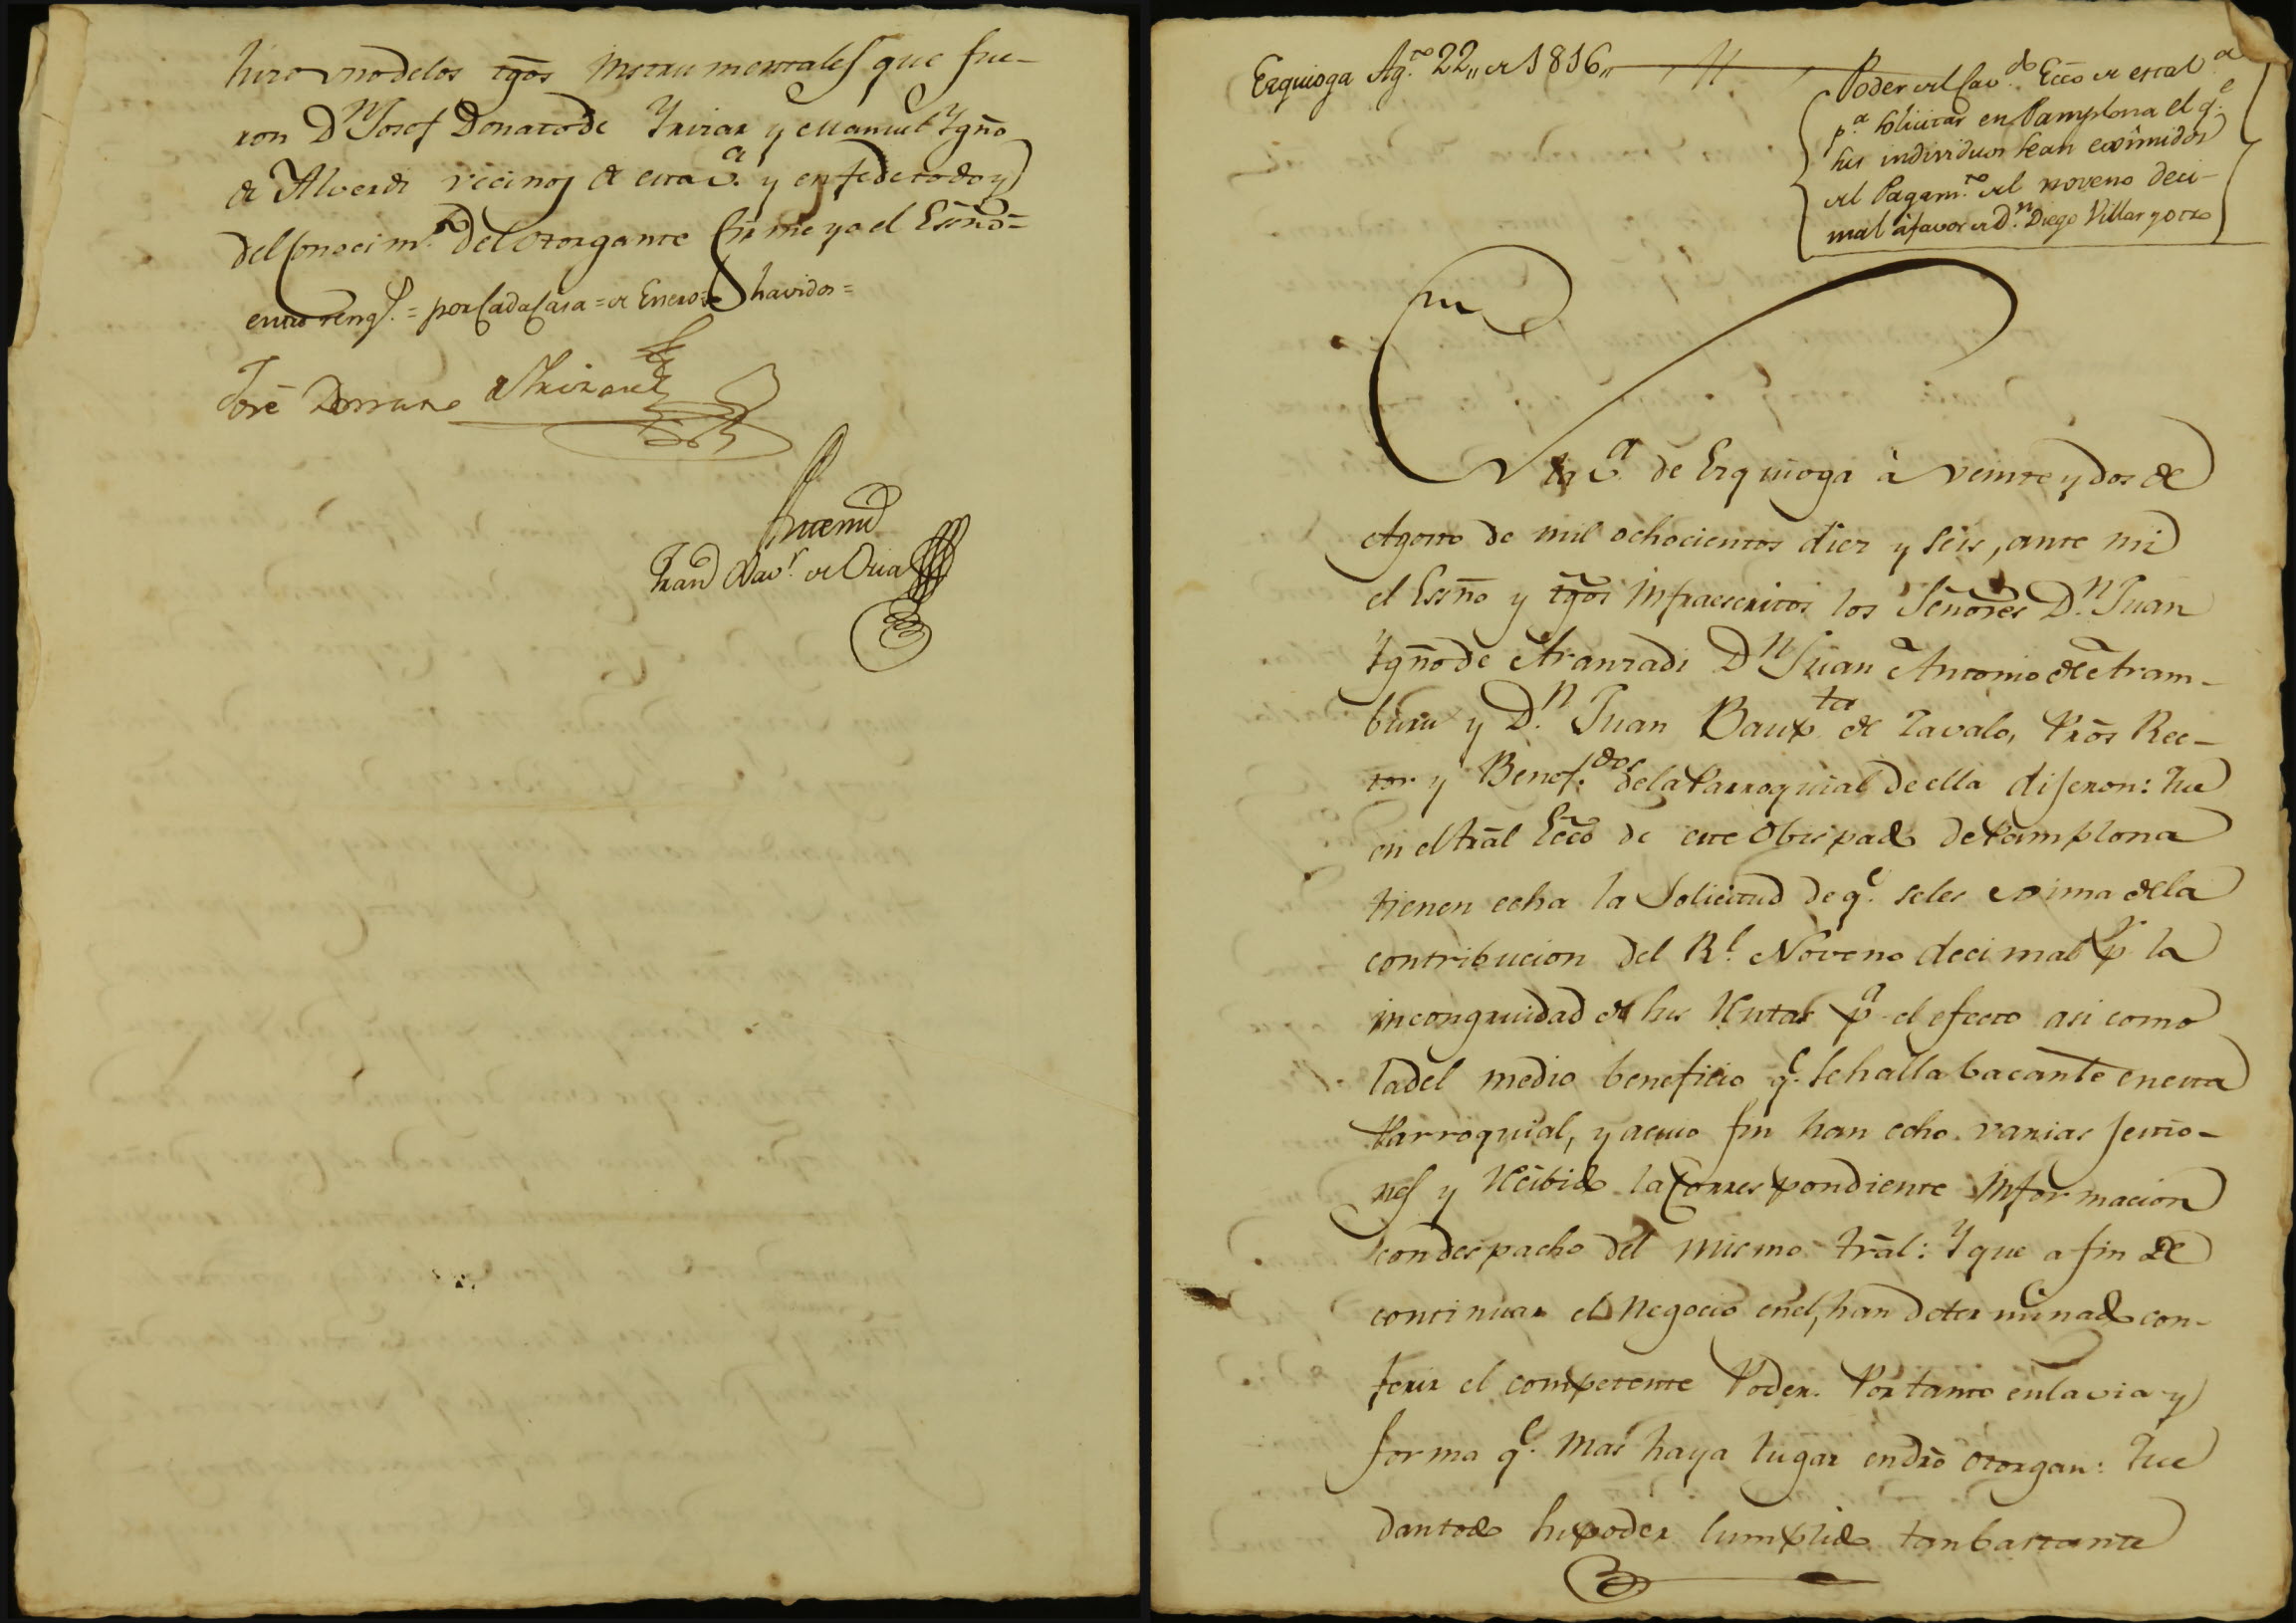 hizo uno de los tg̃os instrumentales que fue-
ron Dn Josef Donato de Yrizar y Manuel Ygño
de Alverdi vecinos de esta va. y en fe de todo y
del conocimto. del otorgante firmé yo el Essño=
entre rengs. = por cada Casa = de Enero = havidos=
José Donato de Yrizar
Ante mi
Franco Xavr. de Oria
Ezquioga Agto. 22,, de 1816,,
Poder del Cavdo. Ecco de esta va
pa. solicitar en Pamplona el qe.
sus individuos sean eximidos
del Pagamto. del noveno deci-
mal à favor de Dn. Diego Villar y otro
En
la va. de Ezquioga à veinte y dos de
Agosto de mil ochocientos diez y seis, ante mi
el Essño y tg̃os infraescritos los Señores Dn. Juan
Ygño de Aranzadi Dn Juan Antonio de Aram-
buru y Dn. Juan Baupta de Zavalo, Prõs Rec-
tor y Benefdos. de la Parroquial de ella dijeron: Que
en el trãl Ecco de este Obispado de Pamplona
tienen echa la Solicitud de qe. se les exima de la
contribucion del Rl. Noveno decimal pr la
incongruidad de sus Rentas pa el efecto asi como
la del medio beneficio qe. se halla bacante en esta
Parroquial, y a cuio fin han echo varias jestio-
nes y recibido la Correspondiente informacion
con despacho del mismo trãl: Y que a fin de
continuar el negocio en el, han determinado con-
ferir el competente Poder. Por tanto en la via y
forma qe. mas haya lugar en drõ otorgan: Que
dan todo su poder cumplido tan bastante